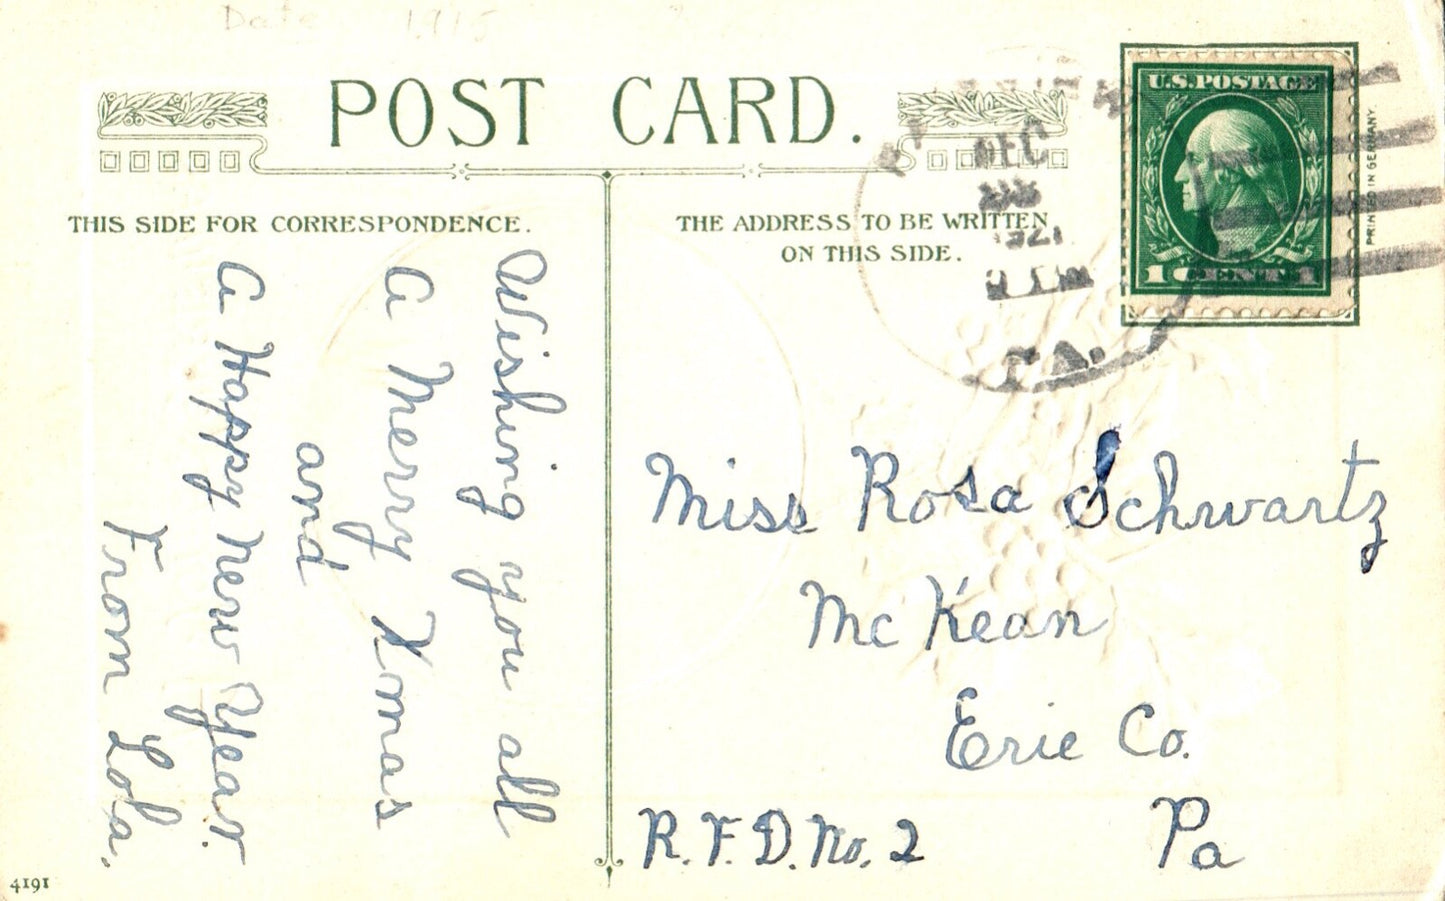 Date 1915
POST CARD.
THIS SIDE FOR CORRESPONDENCE.
THE ADDRESS TO BE WRITTEN
ON THIS SIDE.
U.S. POSTAGE
1 CENT 1
PRINTED IN GERMANY
DEC
PA.
Wishing you all
a Merry Xmas
and
a Happy New Year.
From Lola.
Miss Rosa Schwartz
McKean
Erie Co.
R.F.D. No. 2 Pa
4191